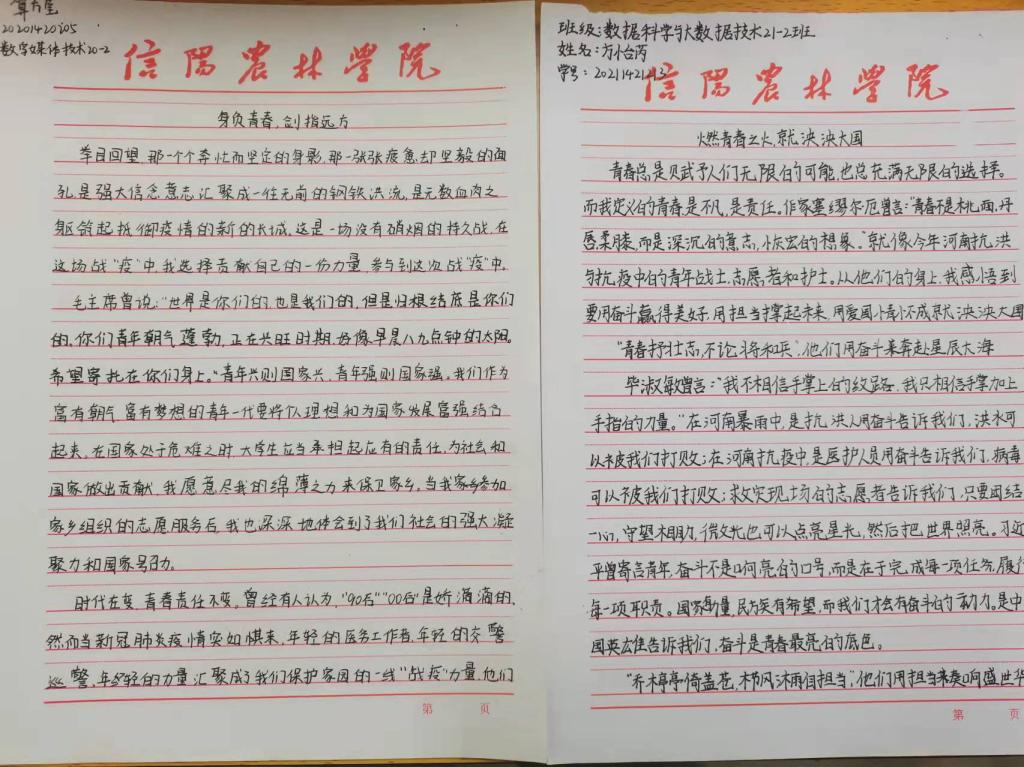 20201420105
数字媒体技术20-2
信陽農林学院
身负青春,剑指远方
举目回望,那一个个奔忙而坚定的身影,那一张张疲惫却坚毅的面
孔,是强大信念意志汇聚成一往无前的钢铁洪流,是无数血肉之
躯筑起抵御疫情的新的长城。这是一场没有硝烟的持久战,在
这场战“疫”中,我选择贡献自己的一份力量,参与到这次战“疫”中。
毛主席曾说:“世界是你们的,也是我们的,但是归根结底是你们
的。你们青年朝气蓬勃,正在兴旺时期,好像早晨八九点钟的太阳。
希望寄托在你们身上。”青年兴则国家兴,青年强则国家强。我们作为
富有朝气富有梦想的青年一代要将个人理想和为国家发展富强结合
起来,在国家处于危难之时,大学生应当承担起应有的责任,为社会和
国家做出贡献,我愿意尽我的绵薄之力来保卫家乡。当我家乡参加
家乡组织的志愿服务后,我也深深地体会到了我们社会的强大凝
聚力和国家号召力。
时代在变,青春责任不变,曾经有人认为,“90后”“00后”是娇滴滴的,
然而当新冠肺炎疫情突如惧来,年轻的医务工作者,年轻的交警
巡警,年轻的力量汇聚成了我们保护家园的一线“战疫”力量,他们
第 页
班级:数据科学与大数据技术21-2班
姓名:
学号:2021421213
信陽農林学院
燃青春之火,就泱泱大国
青春总是赋予人们无限的可能,也总充满无限的选择。
而我定义的青春是不凡,是责任。作家塞缪尔·厄曾言:“青春不是桃面、丹
唇柔膝,而是深沉的意志,恢宏的想象。”就像今年河南抗洪
与抗疫中的青年战士,志愿者和护士。从他们的身上,我感悟到
要用奋斗赢得美好,用担当撑起未来,用爱国情怀成就泱泱大国
“青春抒壮志,不论将和兵”,他们用奋斗来奔赴星辰大海
毕淑敏曾言:“我不相信手掌上的纹路,我只相信手掌加上
手指的力量。”在河南暴雨中,是抗洪人用奋斗告诉我们,洪水可
以被我们打败;在河南抗疫中,是医护人员用奋斗告诉我们,病毒
可以被我们打败;救灾现场的志愿者告诉我们,只要团结
一心,守望相助,微光也可以点亮星光,然后把世界照亮。习近
平曾寄言青年,奋斗不是响亮的口号,而是在于完成每一项任务,履行
每一项职责。国家有力量,民族有希望,而我们才会有奋斗的动力。是中
国英雄告诉我们,奋斗是青春最亮的底色。
“乔木亭亭倚盖苍,栉风沐雨自担当”,他们用担当来奏响盛世华
第 页